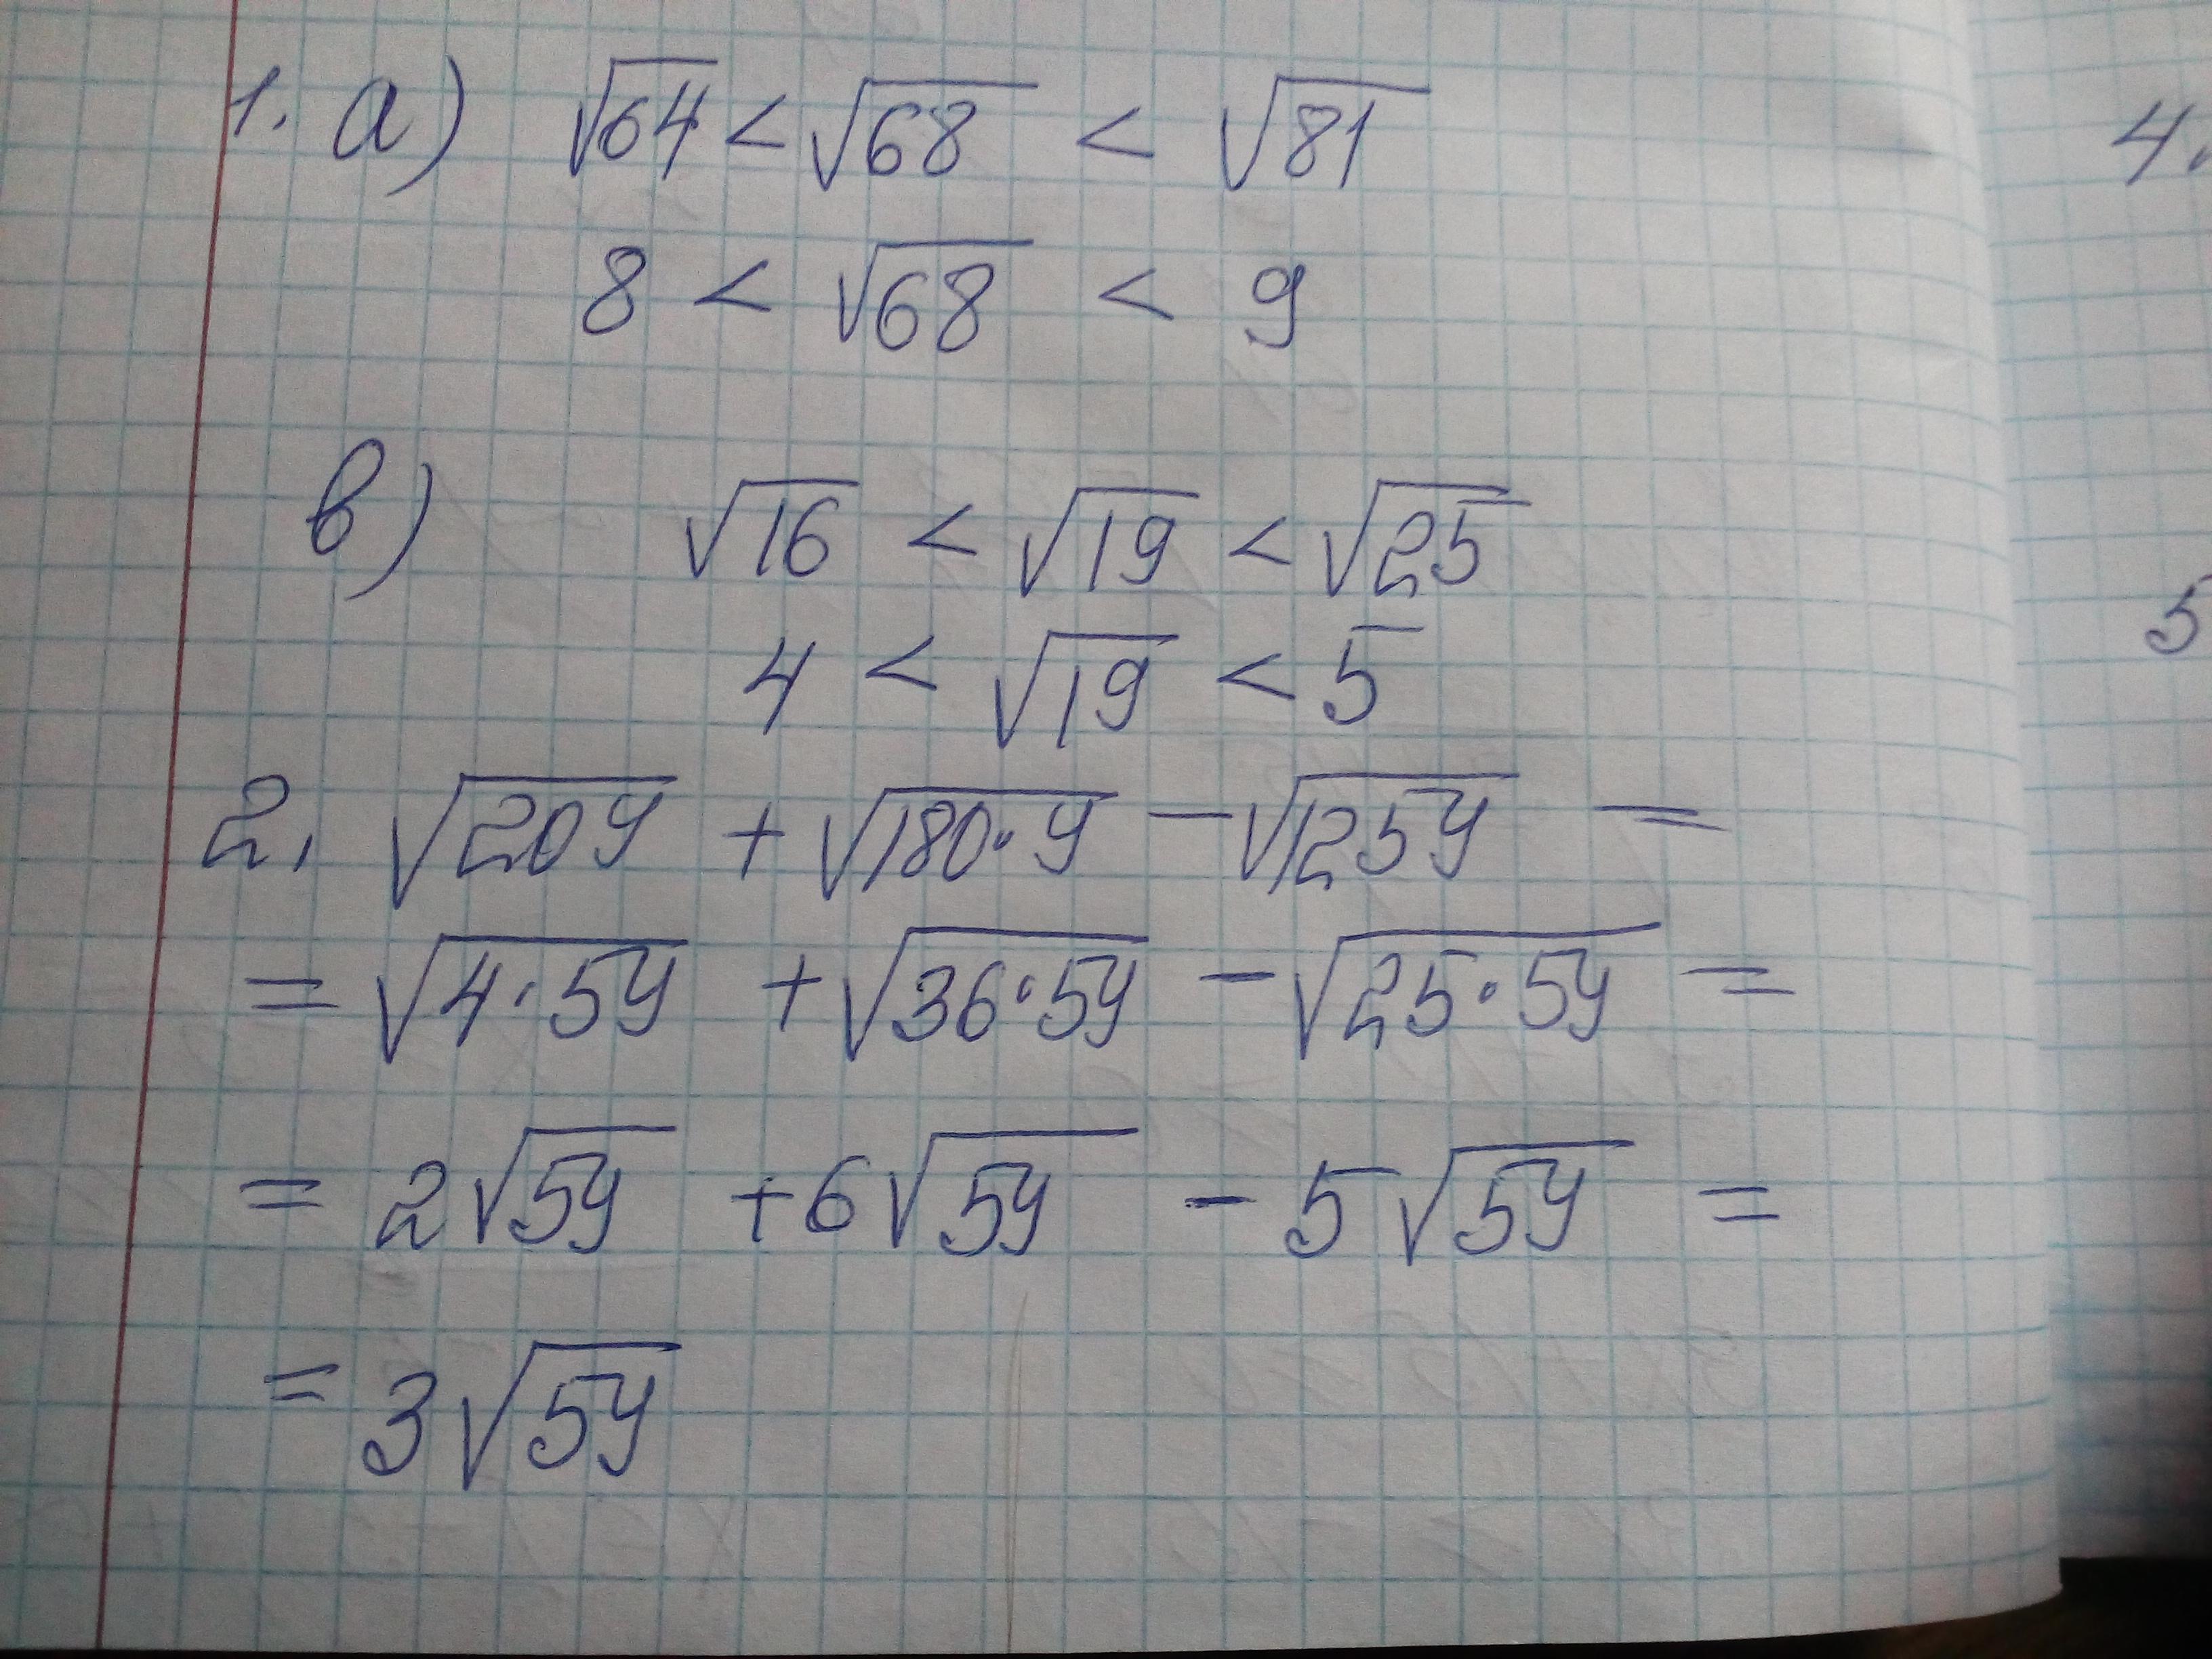 1. а) √64 < √68 < √81
8 < √68 < 9
в) √16 < √19 < √25
4 < √19 < 5
2. √20y + √180·y − √125y =
= √4·5y + √36·5y − √25·5y =
= 2√5y + 6√5y − 5√5y =
= 3√5y
4.
5